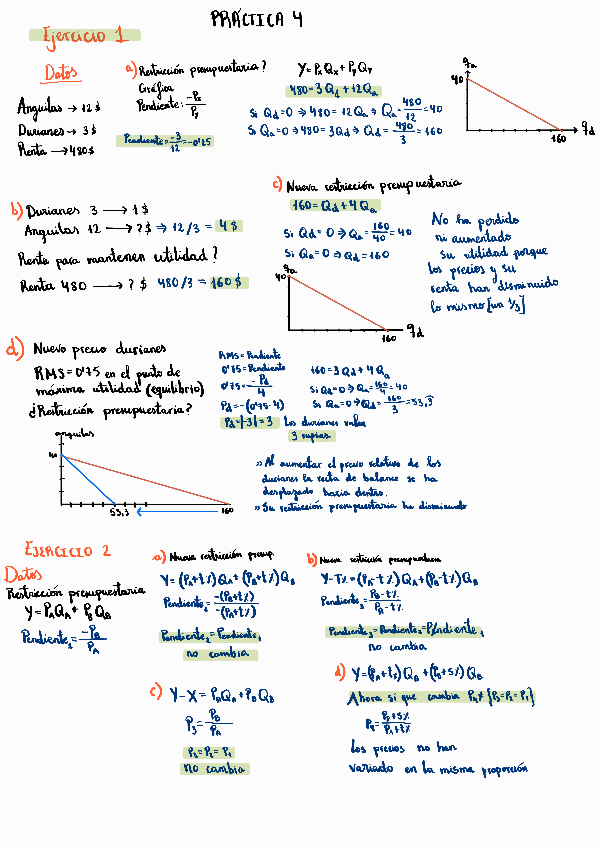 PRÁCTICA 4
Ejercicio 1
Datos
Anguilas → 12 $
Durianes → 3 $
Renta → 480 $
a) Restricción presupuestaria?
Gráfica
Pendiente: -Px/Py
Pendiente = -3/12 = -0'25
Y = PxQx + PyQy
480 = 3Qd + 12Qa
Si Qd = 0 → 480 = 12Qa → Qa = 480/12 = 40
Si Qa = 0 → 480 = 3Qd → Qd = 480/3 = 160
qa
40
160
qd
b) Durianes 3 → 1 $
Anguilas 12 → ? $ ⇒ 12/3 = 4 $
Renta para mantener utilidad?
Renta 480 → ? $ 480/3 = 160 $
c) Nueva restricción presupuestaria
160 = Qd + 4Qa
Si Qd = 0 → Qa = 160/40 = 40
Si Qa = 0 → Qd = 160
qa
40
160
qd
No ha perdido
ni aumentado
su utilidad porque
los precios y su
renta han disminuido
lo mismo [un 1/3]
d) Nuevo precio durianes
RMS = 0'75 en el punto de
máxima utilidad (equilibrio)
¿Restricción presupuestaria?
RMS = Pendiente
0'75 = Pendiente
0'75 = -Pd/4
Pd = -(0'75·4)
Pd = |-3| = 3
Los durianes valen
3 rupias
160 = 3Qd + 4Qa
Si Qd = 0 → Qa = 160/4 = 40
Si Qa = 0 → Qd = 160/3 = 53,3
anguilas
40
53,3
160
» Al aumentar el precio relativo de los
durianes la recta de balance se ha
desplazado hacia dentro.
» Su restricción presupuestaria ha disminuido
EJERCICIO 2
Datos
Restricción presupuestaria
Y = PAQA + PBQB
Pendiente1 = -PB/PA
a) Nueva restricción presup.
Y = (PA+t%)QA + (PB+t%)QB
Pendiente2 = -(PB+t%)/-(PA+t%)
Pendiente2 = Pendiente1
no cambia
b) Nueva restricción presupuestaria
Y-T% = (PA-t%)QA + (PB-t%)QB
Pendiente3 = PB-t%/PA-t%
Pendiente3 = Pendiente2 = Pendiente1
no cambia
c) Y-X = PAQA + PBQB
P3 = PB/PA
P3 = P2 = P1
no cambia
d) Y = (PA+t%)QA + (PB+s%)QB
Ahora si que cambia P4 ≠ {P3=P2=P1}
P4 = PB+s%/PA+t%
Los precios no han
variado en la misma proporción